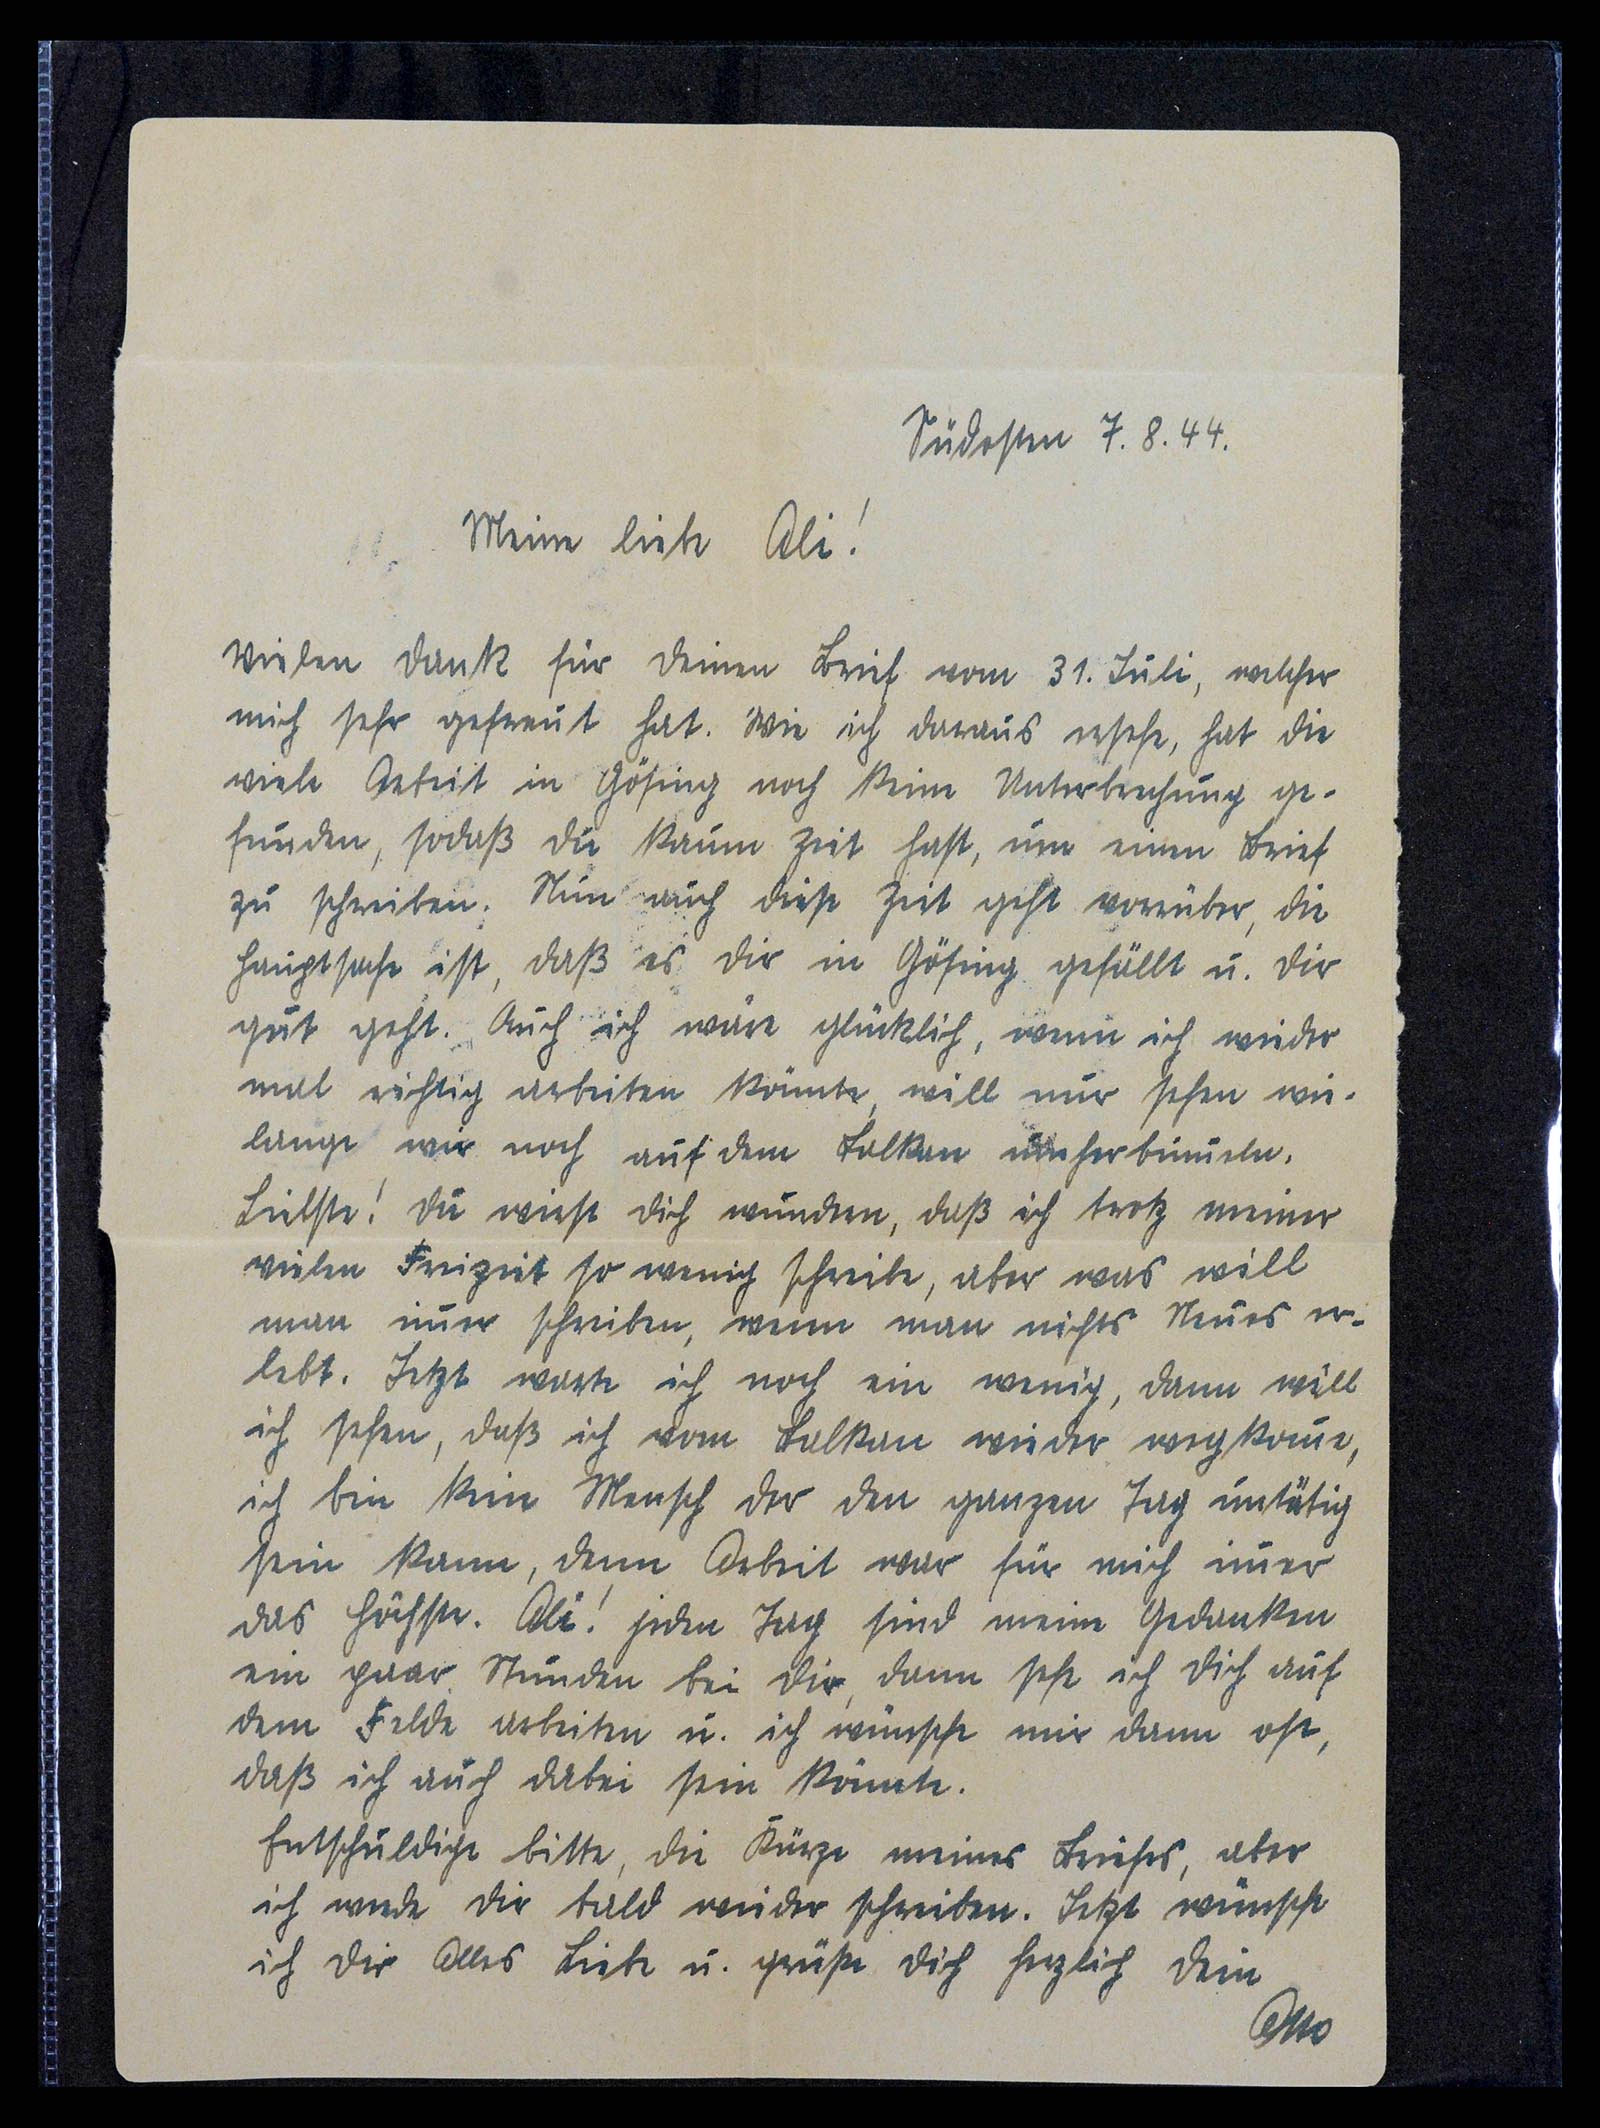 Südosten 7.8.44.
Meine liebe Oli!
Vielen Dank für Deinen Brief vom 31. Juli, welcher
mich sehr gefreut hat. Wie ich daraus ersehe, hat die
viele Arbeit in Gösing noch keine Unterbrechung ge-
funden, sodaß Du kaum Zeit hast, um einen Brief
zu schreiben. Nun auch diese Zeit geht vorrüber, die
Hauptsache ist, daß es Dir in Gösing gefällt u. Dir
gut geht. Auch ich wäre glücklich, wenn ich wieder
mal richtig arbeiten könnte, will nur sehen wie-
lange wir noch auf dem Balkan umherbum̅eln.
Liebste! Du wirst Dich wundern, daß ich trotz meiner
vielen Freizeit so wenig schreibe, aber was will
man im̅er schreiben, wenn man nichts Neues er-
lebt. Jetzt warte ich noch ein wenig, dann will
ich sehen, daß ich vom Balkan wieder wegkom̅e,
ich bin kein Mensch der den ganzen Tag untätig
sein kann, denn Arbeit war für mich im̅er
das höchste. Oli! jeden Tag sind meine Gedanken
ein paar Stunden bei Dir, dann sehe ich Dich auf
dem Felde arbeiten u. ich wünsche mir dann oft,
daß ich auch dabei sein könnte.
Entschuldige bitte, die Kürze meines Briefes, aber
ich werde Dir bald wieder schreiben. Jetzt wünsche
ich Dir Alles Liebe u. grüße Dich herzlich Dein
Otto